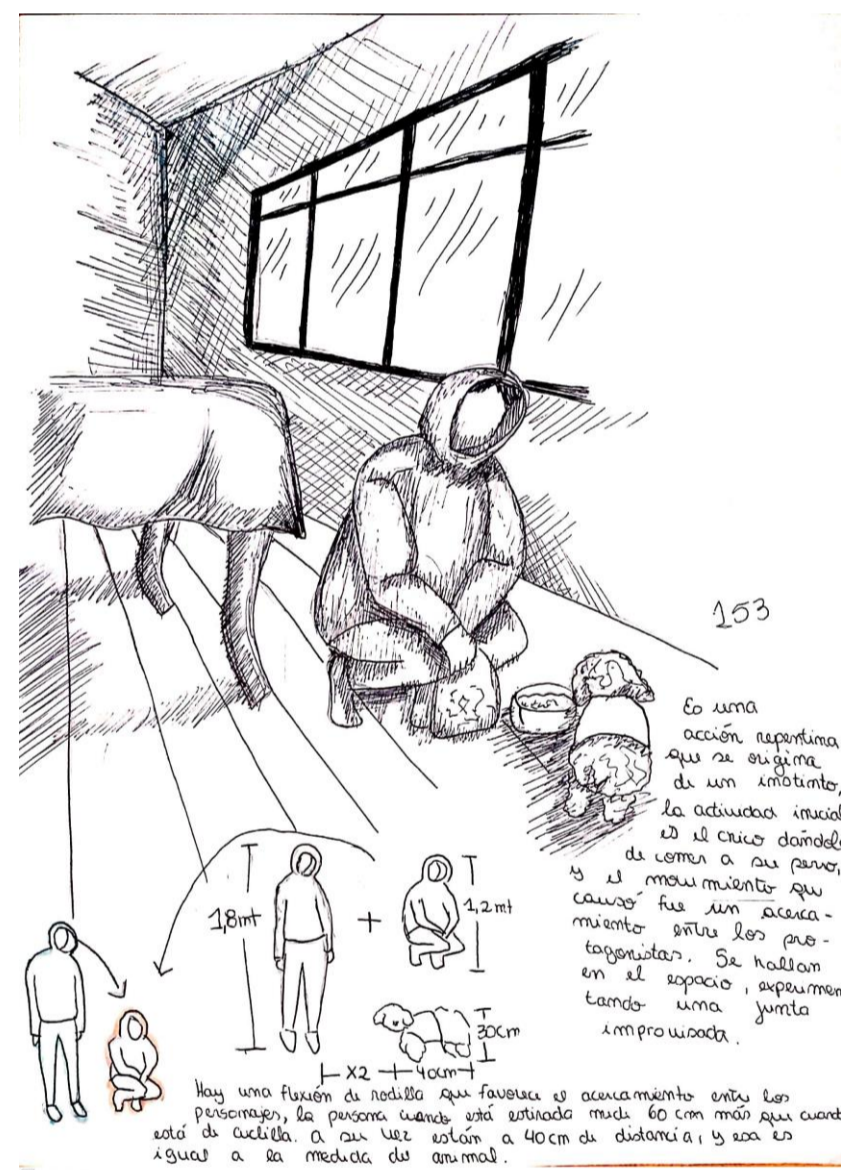 153
Es una
acción repentina
que se origina
de un instinto,
la actividad inicial
es el chico dándole
de comer a su perro,
y el movimiento que
causó fue un acerca-
miento entre los pro-
tagonistas. Se hallan
en el espacio, experimen
tando una junta
improvisada.
1,8mt
+
1,2mt
30cm
X2
40cm
Hay una flexión de rodilla que favorece el acercamiento entre los
personajes, la persona cuando está estirada mide 60 cm más que cuand
está de cuclilla. a su vez están a 40 cm de distancia, y esa es
igual a la medida del animal.